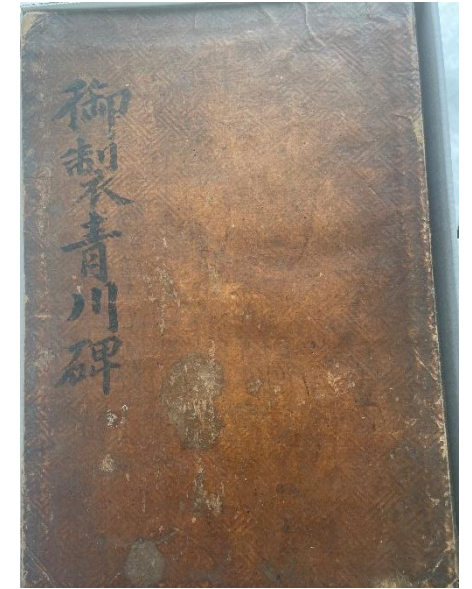 御製青川碑